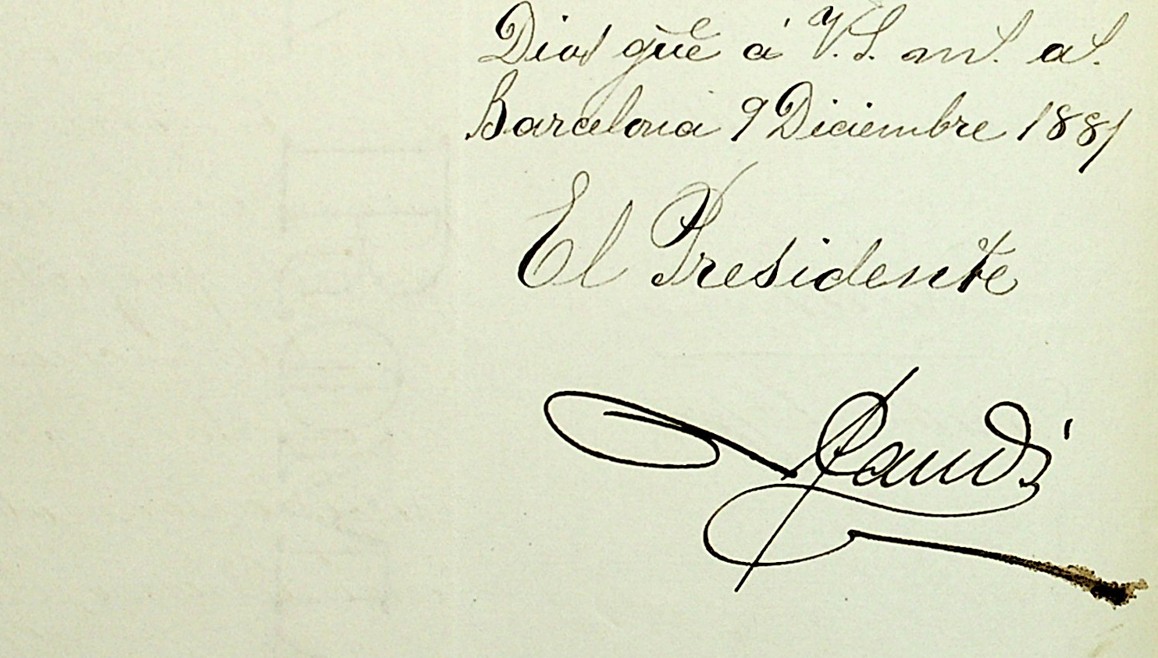 Dios güe á V.S. ms. as.
Barcelona 9 Diciembre 1881
El Presidente
Gaudí